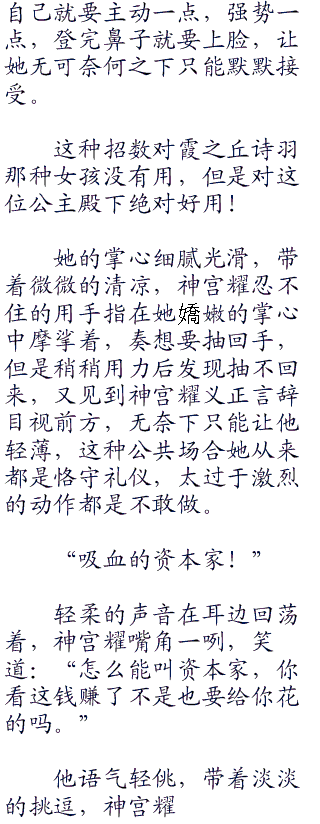 自己就要主动一点，强势一
点，登完鼻子就要上脸，让
她无可奈何之下只能默默接
受。
这种招数对霞之丘诗羽
那种女孩没有用，但是对这
位公主殿下绝对好用！
她的掌心细腻光滑，带
着微微的清凉，神宫耀忍不
住的用手指在她嬌嫩的掌心
中摩挲着，奏想要抽回手，
但是稍稍用力后发现抽不回
来，又见到神宫耀义正言辞
目视前方，无奈下只能让他
轻薄，这种公共场合她从来
都是恪守礼仪，太过于激烈
的动作都是不敢做。
“吸血的资本家！”
轻柔的声音在耳边回荡
着，神宫耀嘴角一咧，笑
道：“怎么能叫资本家，你
看这钱赚了不是也要给你花
的吗。”
他语气轻佻，带着淡淡
的挑逗，神宫耀